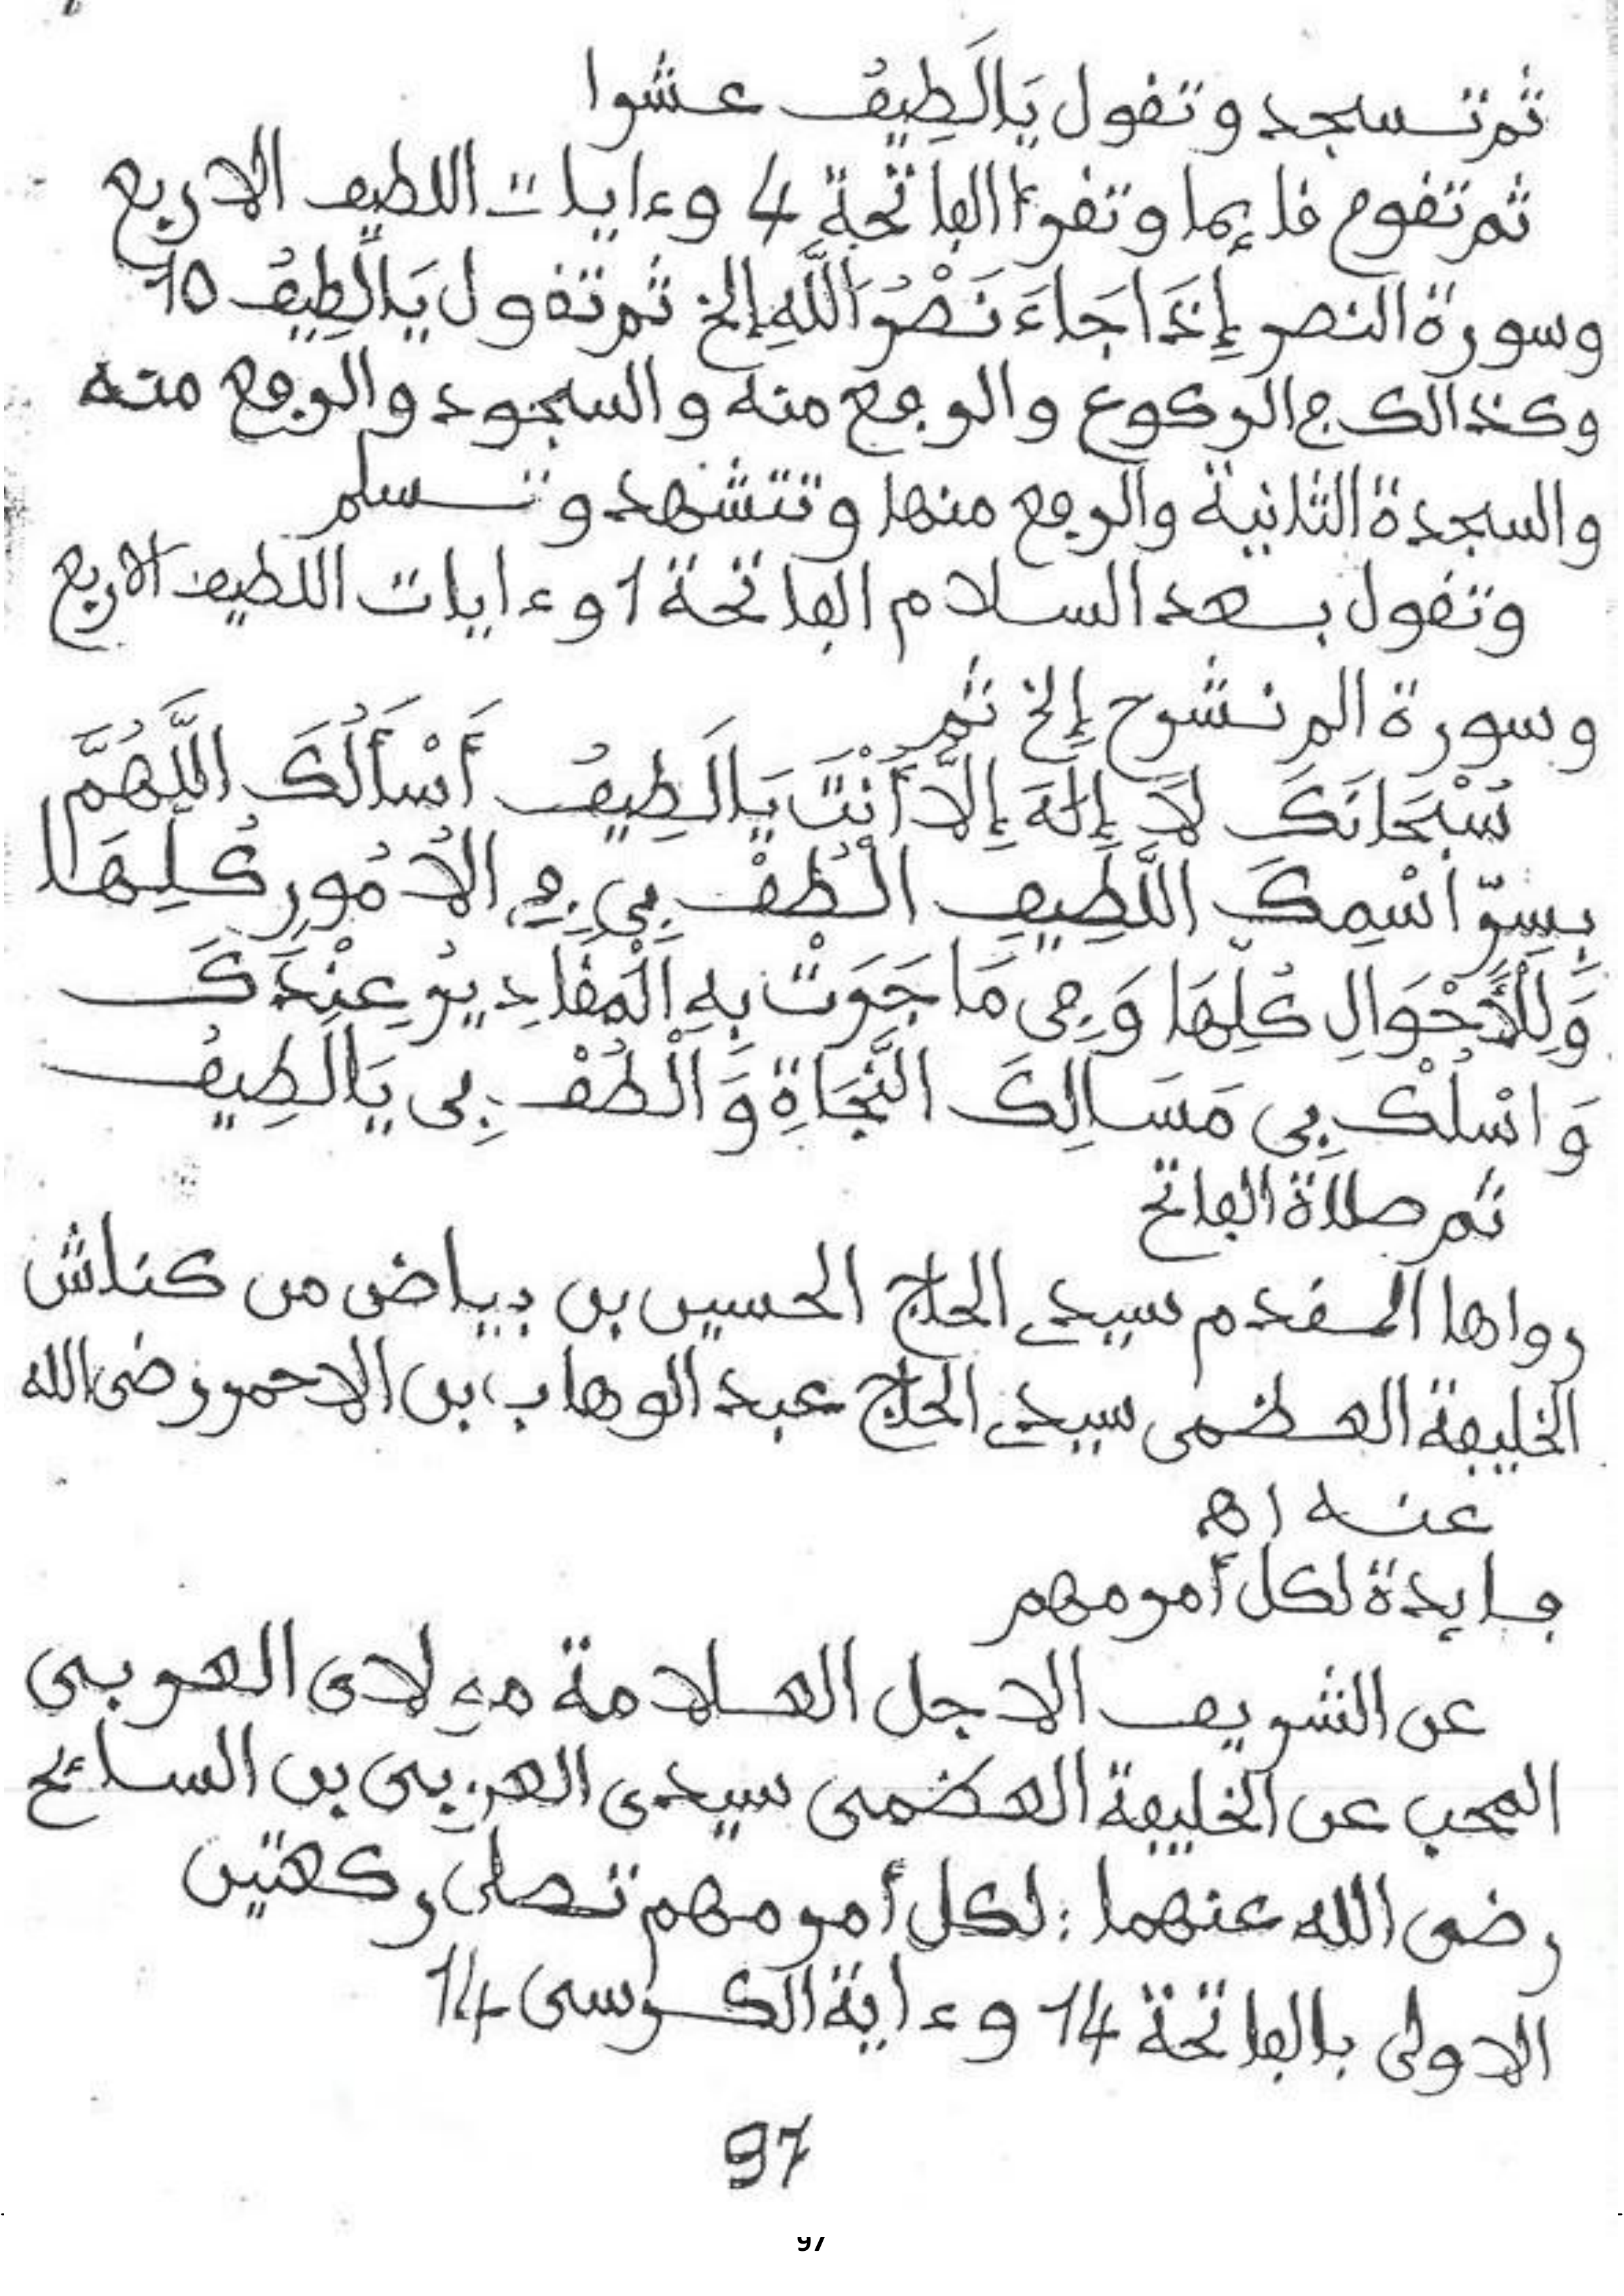 ثم تسجد وتقول يَالَطِيفُ عشرا
ثم تقوم قايما وتقرءا الفاتحة 4 وءايات اللطيف الاربع
وسورة النصر إِذَا جَاءَ نَصْرُ اللَّهِ إلخ ثم تقول يَالَطِيفُ 10
وكذالك في الركوع والرفع منه والسجود والرفع منه
والسجدة الثانية والرفع منها وتتشهد وتسلم
وتقول بعد السلام الفاتحة 1 وءايات اللطيف الاربع
وسورة الم نشرح إلخ ثم
سُبْحَانَكَ لَا إِلَهَ إِلَّا أَنْتَ يَالَطِيفُ أَسْأَلُكَ اللَّهُمَّ
بِسِرِّ اسْمِكَ اللَّطِيفِ الْطُفْ بِي فِي الْامُورِ كُلِّهَا
وَلِلْأَحْوَالِ كُلِّهَا وَفِي مَا جَرَتْ بِهِ الْمَقَادِيرُ عِنْدَكَ
وَاسْلُكْ بِي مَسَالِكَ النَّجَاةِ وَالْطُفْ بِي يَالَطِيفُ
ثم صلاة الفاتح
رواها المقدم سيدي الحاج الحسين بن بياض من كناش
الخليفة العظمى سيدي الحاج عبد الوهاب بن الاحمر رضى الله
عنه اهـ
فايدة لكل أمر مهم
عن الشريف الاجل العلامة مولاى العربى
المحب عن الخليفة العضمى سيدى العربى بن السائح
رضى الله عنهما : لكل أمر مهم تصلى ركعتين
الاولى بالفاتحة 14 وءاية الكرسى 14
97
97